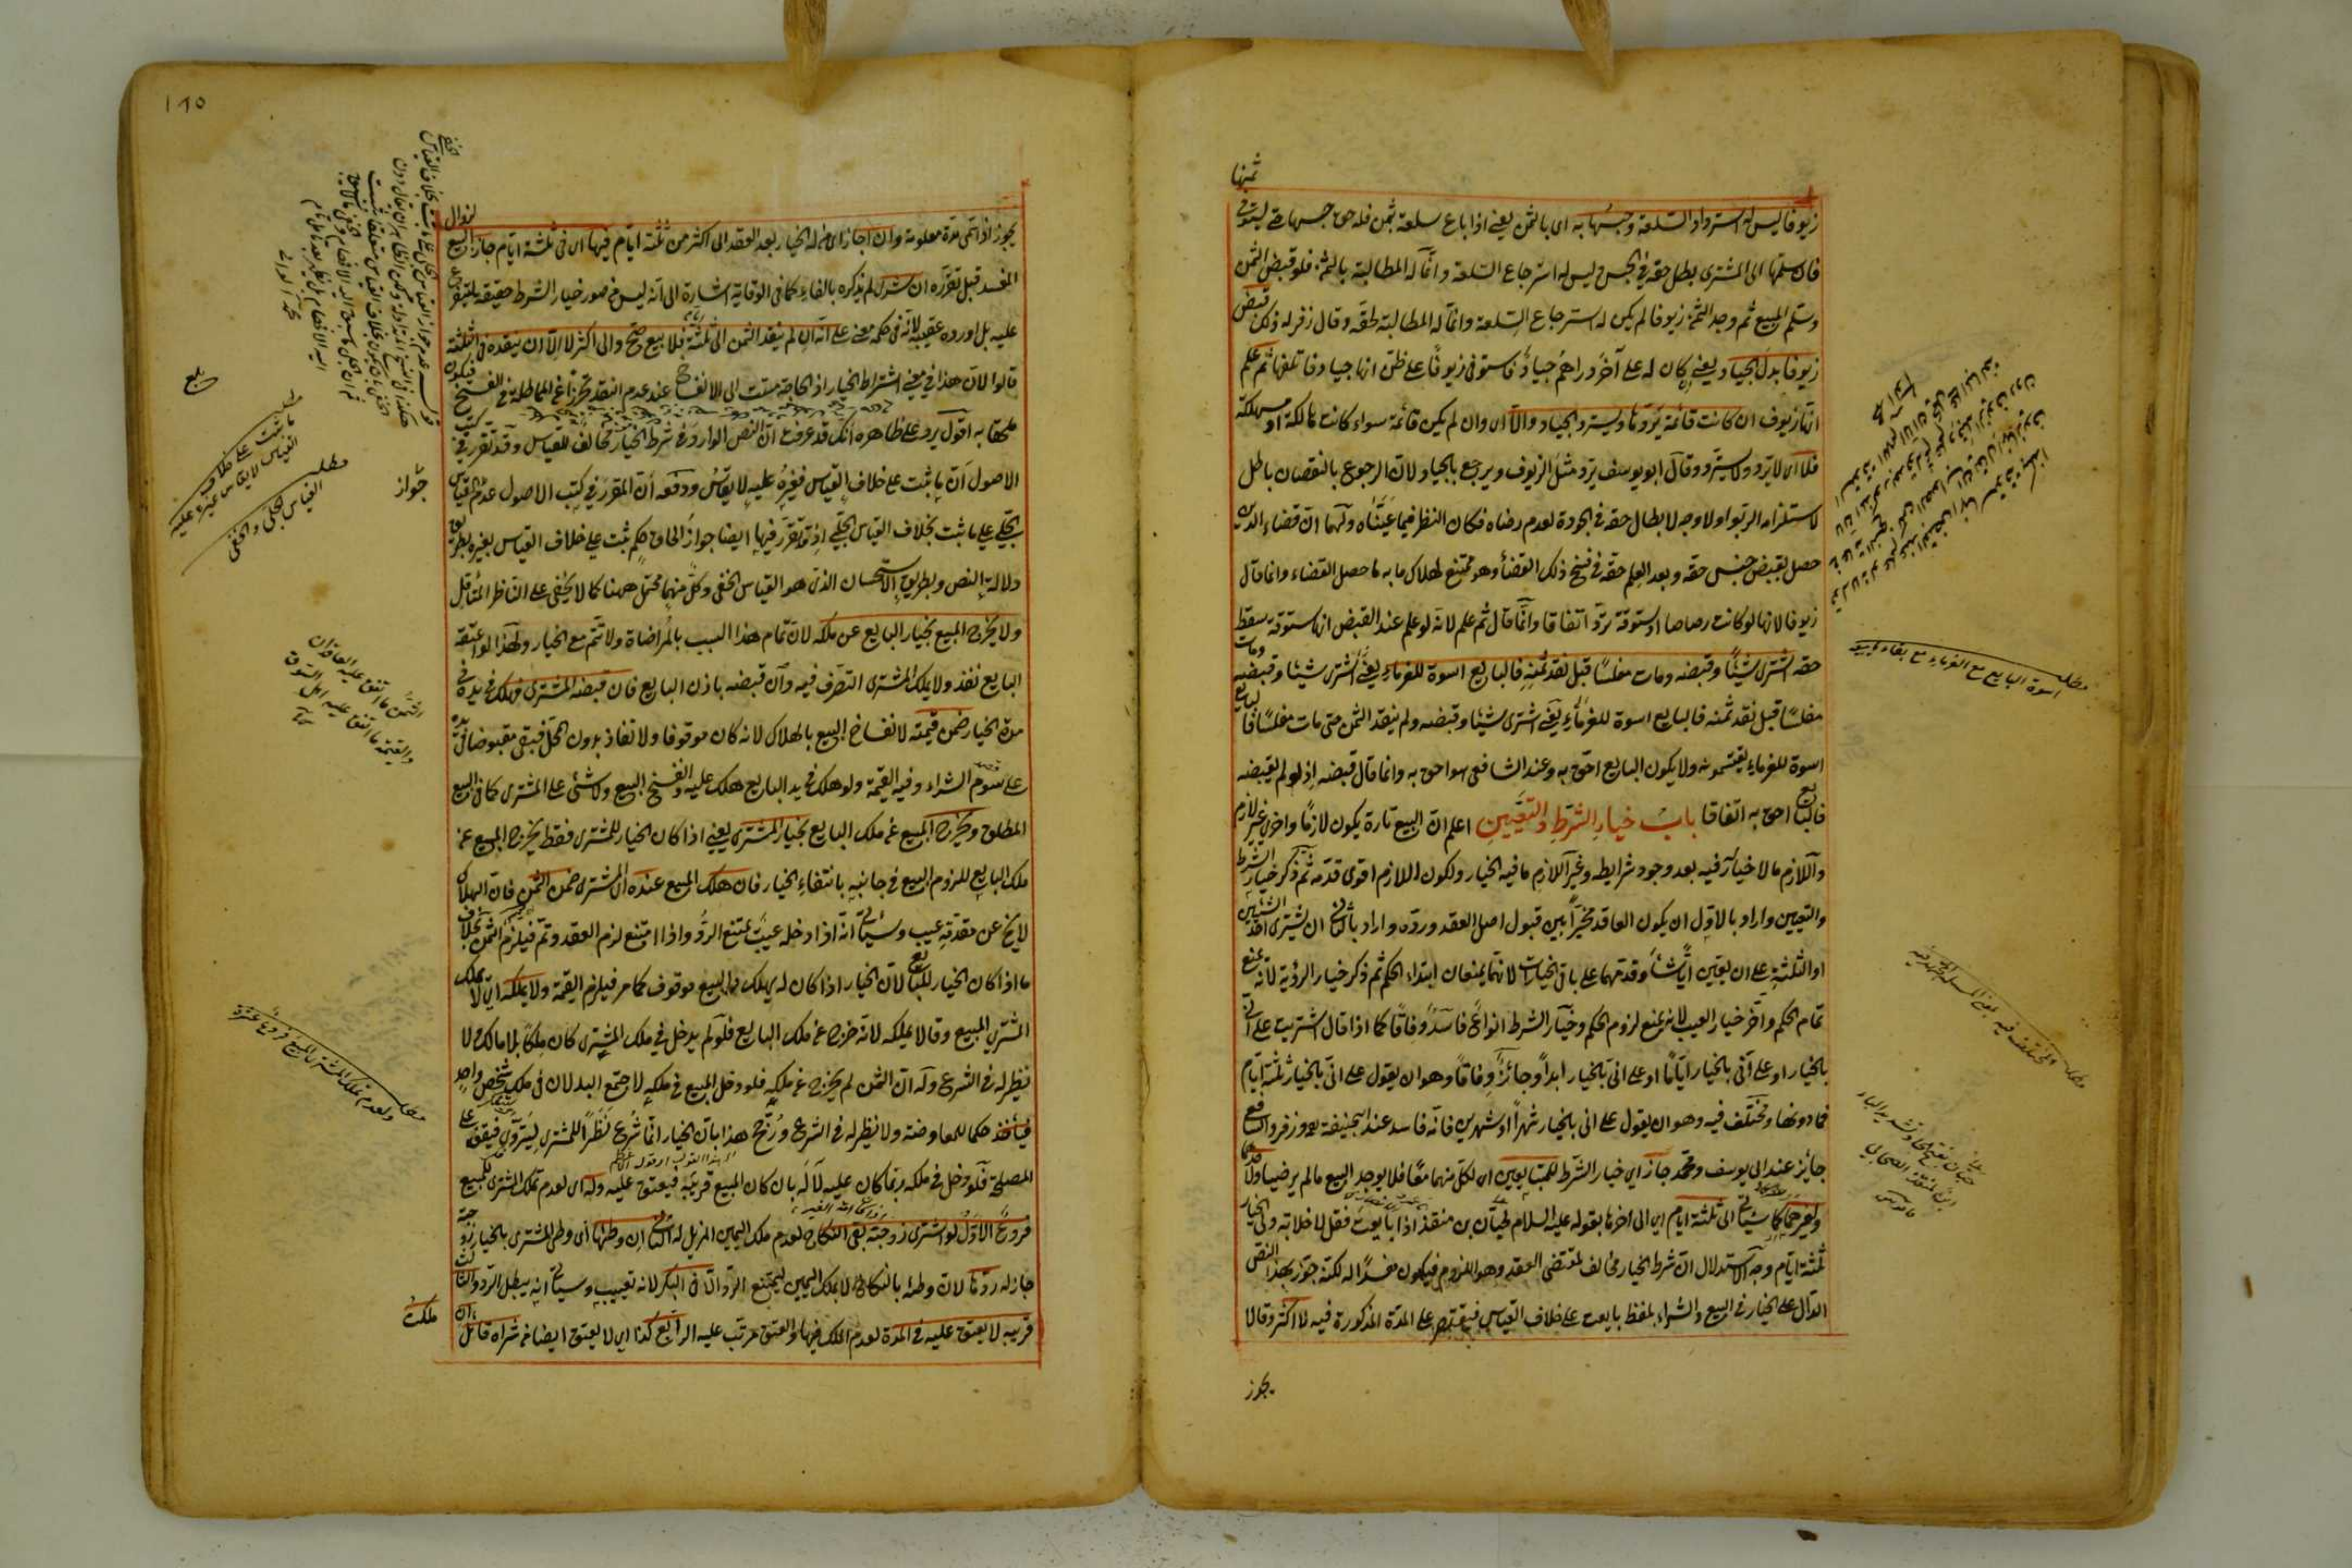 ثمنها
زيوفا ليس له استرداد السلعة وحبسها به اى بالثمن يعنى اذا باع سلعة بثمن فله حق حبسها حتى يستوفى
فان سلمها الى المشترى بطل حقه فى الحبس ليس له استرجاع السلعة وانما له المطالبة بالثمن فلو قبض الثمن
وسلم المبيع ثم وجد الثمن زيوفا لم يكن له استرجاع السلعة وانما له المطالبة بحقه وقال زفر له ذلك قبض
زيوفا بدل الجياد يعنى كان له على آخر دراهم جياد فاستوفى زيوفا على ظن انها جياد فاتلفها ثم علم
انها زيوف ان كانت قائمة يردها ويسترد الجياد والا اى وان لم يكن قائمة سواء كانت هالكة او مستهلكة
فلا اى لا يرد ولا يسترد وقال ابو يوسف يرد مثل الزيوف ويرجع بالجياد لان الرجوع بالنقصان باطل
لاستلزامه الربوا ولا وجه لابطال حقه فى الجودة لعدم رضاه فكان النظر فيما عيناه ولهما ان قضاء الدين
حصل بقبض جنس حقه وبعد العلم حقه فى فسخ ذلك القضاء وهو ممتنع لهلاك ما به ما حصل القضاء وانما قال
زيوفا لانها لو كانت رصاصا او ستوقة يرد اتفاقا وانما قال ثم علم لانه لو علم عند القبض انها ستوقة سقط
حقه اشترى شيئا وقبضه ومات مفلسا قبل نقد ثمنه فالبايع اسوة للغرماء يعنى اشترى شيئا وقبضه ومات
مفلسا قبل نقد ثمنه فالبايع اسوة للغرماء يعنى اشترى شيئا وقبضه ولم ينقد الثمن حتى مات مفلسا فالبايع
اسوة للغرماء يقتسمونه ولا يكون البايع احق به وعند الشافعى هو احق به وانما قال قبضه اذ لو لم يقبضه
فالبايع احق به اتفاقا باب خيار الشرط والتعيين اعلم ان البيع تارة يكون لازما واخرى غير لازم
واللازم ما لا خيار فيه بعد وجود شرايطه وغير اللازم ما فيه الخيار ولكون اللازم اقوى قدمه ثم ذكر خيار الشرط
والتعيين واراد بالاول ان يكون العاقد مخيرا بين قبول اصل العقد ورده واراد بالثانى ان يشترى احد الشيئين
او الثلثة على ان يعين ايا شاء وقدمهما على باقى الخيارات لانهما يمنعان ابتداء الحكم ثم ذكر خيار الرؤية لانه يمنع
تمام الحكم واخر خيار العيب لانه يمنع لزوم الحكم وخيار الشرط انواع فاسد وفاقا كما اذا قال اشتريت على انى
بالخيار او على انى بالخيار اياما او على انى بالخيار ابدا وجائز وفاقا وهو ان يقول على انى بالخيار ثلثة ايام
فما دونها ومختلف فيه وهو ان يقول على انى بالخيار شهرا او شهرين فانه فاسد عند ابى حنيفة وزفر والشافعى
جائز عند ابى يوسف ومحمد جاز اى خيار الشرط للمتبايعين اى لكل منهما معا فلا يوجد البيع ما لم يرضيا
ولغيرهما كما سيأتى الى ثلثة ايام اى الى اخرها بقوله عليه السلام لحبان بن منقذ اذا بايعت فقل لا خلابة ولى الخيار
ثلثة ايام وجه الاستدلال ان شرط الخيار مخالف لمقتضى العقد وهو اللزوم فيكون مفسدا له لكنه جوز بهذا النص
الدال على الخيار فى البيع والشراء بلفظ بايعت على خلاف القياس فيقتصر على المدة المذكورة فيه لا اكثر وقالا
يجوز
مطلب اسوة البايع مع الغرماء
حبان بفتح الحاء وتشديد الباء
ابن منقذ الصحابى
١٨٥
يجوز اذا سمى مدة معلومة وان اجاز اى من له الخيار بعد العقد الى اكثر من ثلثة ايام فيها اى فى ثلثة ايام جاز البيع لزوال
المفسد قبل تقرره ان شرى لم يذكره بالفاء كما فى الوقاية اشارة الى انه ليس من صور خيار الشرط حقيقة
عليه بل اورده عقيبه لانه فى حكمه معنى على انه ان لم ينقد الثمن الى ثلثة ايام فلا بيع صح والى اكثر لا الا ان ينقده فى الثلثة
قالوا لان هذا فى معنى اشتراط الخيار اذ الحاجة مست الى الانفساخ عند عدم النقد تحرزا عن المماطلة فى الفسخ فيكون
ملحقا به اقول يرد على ظاهره انك قد عرفت ان النص الوارد فى شرط الخيار مخالف للقياس وقد تقرر فى كتب
الاصول ان ما ثبت على خلاف القياس فغيره عليه لا يقاس ودفعه ان المقرر فى كتب الاصول عدم القياس
الجلى على ما ثبت بخلاف القياس الجلى اذ تقرر فيها ايضا جواز الحاق حكم ثبت على خلاف القياس بغيره بطريق
دلالة النص وبطريق الاستحسان الذى هو القياس الخفى وكل منهما محتمل ههنا كما لا يخفى على الناظر المتأمل
ولا يخرج المبيع بخيار البايع عن ملكه لان تمام هذا السبب بالمراضاة ولا تتم مع الخيار ولهذا لو اعتقه
البايع نفذ ولا يملك المشترى التصرف فيه وان قبضه باذن البايع فان قبضه المشترى فهلك فى يده فى
مدة الخيار ضمن قيمته لانفساخ البيع بالهلاك لانه كان موقوفا ولا نفاذ بدون المحل فبقى مقبوضا فى يده
على سوم الشراء وفيه القيمة ولو هلك فى يد البايع هلك عليه وانفسخ البيع ولا شئ على المشترى كما فى البيع
المطلق ويخرج المبيع عن ملك البايع بخيار المشترى يعنى اذا كان الخيار للمشترى فقط يخرج المبيع عن
ملك البايع للزوم البيع فى جانبه بانتفاء الخيار فان هلك المبيع عنده اى المشترى ضمن الثمن فان الهلاك
لا يخ عن مقدمة عيب وسيأتى انه اذا دخله عيب يمتنع الرد واذا امتنع لزم العقد وتم فيلزم الثمن بخلاف
ما اذا كان الخيار للبايع لان الخيار اذا كان له يهلك والبيع موقوف كما مر فيلزم القيمة ولا يملكه اى لا يملك
المشترى المبيع وقالا يملكه لانه خرج عن ملك البايع فلو لم يدخل فى ملك المشترى كان ملكا بلا مالك ولا
نظير له فى الشرع وله ان الثمن لم يخرج عن ملكه فلو دخل المبيع فى ملكه لاجتمع البدلان فى ملك شخص واحد
حكما للمعاوضة ولا نظير له فى الشرع ورجح هذا بان الخيار انما شرع نظرا للمشترى ليتروى فيقف على
المصلحة فلو دخل فى ملكه ربما كان عليه لا له بان كان المبيع قريبه فيعتق عليه وله اى لعدم تملك المشترى المبيع
فروع الاول لو اشترى زوجته بقى النكاح لعدم ملك اليمين المزيل له الثانى ان وطئها اى وطى المشترى بالخيار زوجته
جاز له ردها لان وطئه بالنكاح لا بملك اليمين ليمتنع الرد الا فى البكر لانه تعييب وسيأتى انه يبطل الرد والثالث
قريبه لا يعتق عليه فى المدة لعدم الملك فيها والعتق مرتب عليه الرابع كذا اى لا يعتق ايضا من شراه قائلا ان
ملكت
جواز
مطلب ما ثبت على خلاف
القياس لا يقاس غيره عليه
مطلب القياس الجلى والخفى
الثمن ما اتفق عليه العاقدان
والقيمة ما اتفق عليه اهل السوق